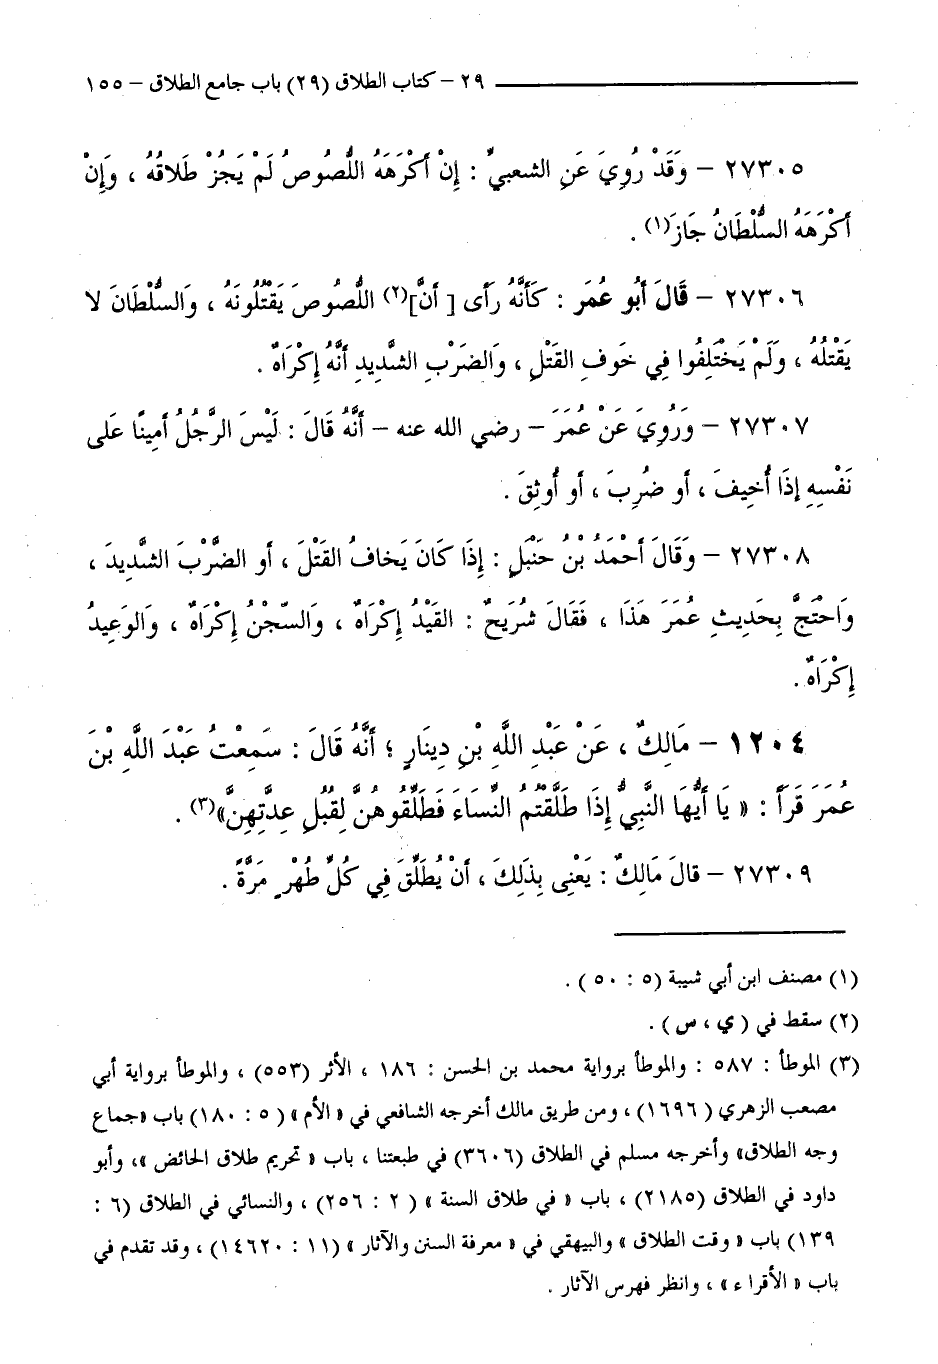 ٢٩ – كتاب الطلاق (٢٩) باب جامع الطلاق – ١٥٥
٢٧٣٠٥ – وَقَدْ رُوِيَ عَنِ الشعبيِّ : إِنْ أَكْرَهَهُ اللُّصُوصُ لَمْ يَجُزْ طَلاقُهُ ، وَإِنْ
أَكْرَهَهُ السُّلْطَانُ جَازَ(١) .
٢٧٣٠٦ – قَالَ أَبُو عُمَرَ : كَأَنَّهُ رَأى [ أَنَّ](٢) اللُّصُوصَ يَقْتُلُونَهُ ، وَالسُّلْطَانَ لا
يَقْتُلُهُ ، وَلَمْ يَخْتَلِفُوا فِي خَوفِ القَتْلِ ، وَالضَرْبِ الشَّدِيدِ أَنَّهُ إِكْرَاهٌ .
٢٧٣٠٧ – وَرُوِيَ عَنْ عُمَرَ – رضي الله عنه – أَنَّهُ قَالَ : لَيْسَ الرَّجُلُ أَمِينًا عَلى
نَفْسِهِ إِذَا أُخِيفَ ، أو ضُرِبَ ، أو أُوثِقَ .
٢٧٣٠٨ – وَقَالَ أَحْمَدُ بْنُ حَنْبَلٍ : إِذَا كَانَ يَخافُ القَتْلَ ، أو الضَّرْبَ الشَّدِيدَ ،
وَاحْتَجَّ بِحَدِيثِ عُمَرَ هَذَا ، فَقَالَ شُرَيحٌ : القَيْدُ إِكْرَاهٌ ، وَالسِّجْنُ إِكْرَاهٌ ، وَالوَعِيدُ
إِكْرَاهٌ .
١٢٠٤ – مَالِكٌ ، عَنْ عَبْدِ اللَّهِ بْنِ دِينَارٍ ؛ أَنَّهُ قَالَ : سَمِعْتُ عَبْدَ اللَّهِ بْنَ
عُمَرَ قَرَأَ : « يَا أَيُّهَا النَّبِيُّ إِذَا طَلَّقْتُمُ النِّسَاءَ فَطَلِّقُوهُنَّ لِقُبُلِ عِدَّتِهِنَّ»(٣) .
٢٧٣٠٩ – قالَ مَالِكٌ : يَعْنِى بِذَلِكَ ، أَنْ يُطَلِّقَ فِي كُلِّ طُهْرٍ مَرَّةً .
(١) مصنف ابن أبي شيبة (٥ : ٥٠ ) .
(٢) سقط في ( ي ، س ) .
(٣) الموطأ : ٥٨٧ : والموطأ برواية محمد بن الحسن : ١٨٦ ، الأثر (٥٥٣) ، والموطأ برواية أبي
مصعب الزهري ( ١٦٩٦) ، ومن طريق مالك أخرجه الشافعي في « الأم » ( ٥ : ١٨٠) باب «جماع
وجه الطلاق» وأخرجه مسلم في الطلاق (٣٦٠٦) في طبعتنا ، باب « تحريم طلاق الحائض »، وأبو
داود في الطلاق (٢١٨٥) ، باب « في طلاق السنة » ( ٢ : ٢٥٦) ، والنسائي في الطلاق (٦ :
١٣٩) باب « وقت الطلاق » والبيهقي في « معرفة السنن والآثار » (١١ : ١٤٦٢٠) ، وقد تقدم في
باب « الأقراء » ، وانظر فهرس الآثار .